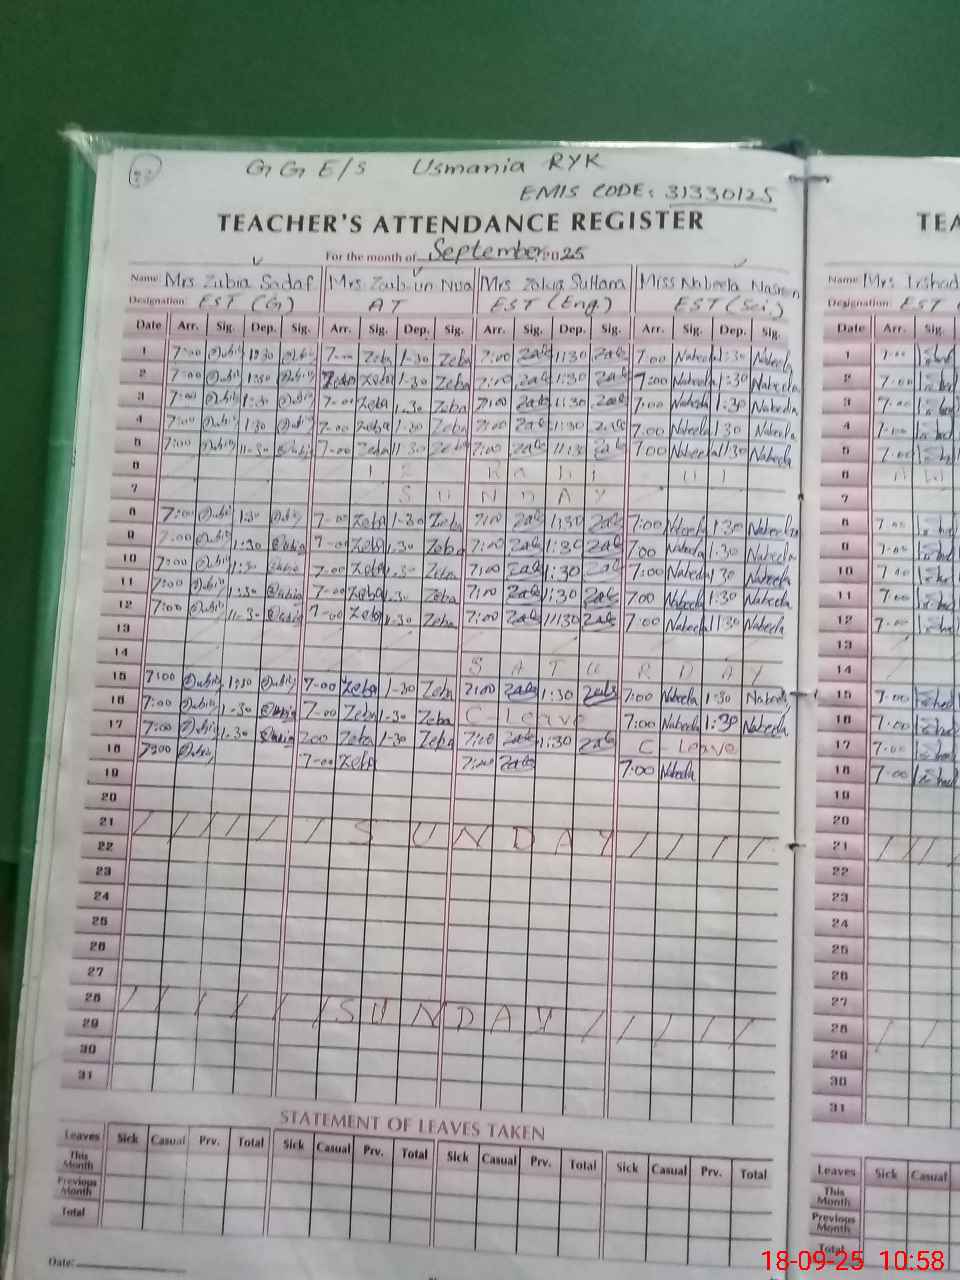 GGE/S Usmania RYK
EMIS CODE: 31330125
TEACHER'S ATTENDANCE REGISTER
For the month of September 2025
Name: Mrs Zubia Sadaf Mrs Zaib-un Nisa Mrs Zakia Sultana Miss Nabeela Nasreen
Designation: EST (G) AT EST (Eng.) EST (Sci.)
Date Arr. Sig. Dep. Sig. Arr. Sig. Dep. Sig. Arr. Sig. Dep. Sig. Arr. Sig. Dep. Sig.
1 7:00 Zubia 1:30 Zubia 7-00 Zeba 1-30 Zeba 7:00 1:30 7:00 Nabeela 1:30 Nabeela
2 7:00 Zubia 1:30 Zubia 7:00 Zeba 1-30 Zeba 7:00 1:30 7:00 Nabeela 1:30 Nabeela
3 7:00 Zubia 1:30 Zubia 7-00 Zeba 1-30 Zeba 7:00 1:30 7:00 Nabeela 1:30 Nabeela
4 7:00 Zubia 1:30 Zubia 7-00 Zeba 1-30 Zeba 7:00 1:30 7:00 Nabeela 1:30 Nabeela
5 7:00 Zubia 11-30 Zubia 7-00 Zeba 11-30 Zeba 7:00 11:30 7:00 Nabeela 11:30 Nabeela
6
7 SUNDAY
8 7:00 Zubia 1:30 Zubia 7-00 Zeba 1-30 Zeba 7:00 1:30 7:00 Nabeela 1:30 Nabeela
9 7:00 Zubia 1:30 Zubia 7-00 Zeba 1-30 Zeba 7:00 1:30 7:00 Nabeela 1:30 Nabeela
10 7:00 Zubia 1:30 Zubia 7-00 Zeba 1-30 Zeba 7:00 1:30 7:00 Nabeela 1:30 Nabeela
11 7:00 Zubia 1:30 Zubia 7-00 Zeba 1-30 Zeba 7:00 1:30 7:00 Nabeela 1:30 Nabeela
12 7:00 Zubia 11-30 Zubia 7-00 Zeba 11-30 Zeba 7:00 11:30 7:00 Nabeela 11:30 Nabeela
13
14 SATURDAY
15 7:00 Zubia 1:30 Zubia 7-00 Zeba 1-30 Zeba 7:00 1:30 7:00 Nabeela 1:30 Nabeela
16 7:00 Zubia 1-30 Zubia 7-00 Zeba 1-30 Zeba C-Leave 7:00 Nabeela 1:30 Nabeela
17 7:00 Zubia 1-30 Zubia 7:00 Zeba 1-30 Zeba 7:00 1:30 C-Leave
18 7:00 Zubia 7-00 Zeba 7:00 7:00 Nabeela
19
20
21 SUNDAY
22
23
24
25
26
27
28 SUNDAY
29
30
31
STATEMENT OF LEAVES TAKEN
Leaves Sick Casual Prv. Total Sick Casual Prv. Total Sick Casual Prv. Total Sick Casual Prv. Total
This Month
Previous Month
Total
Date:
TEA
Name: Mrs Irshad
Designation: EST
Date Arr. Sig.
1 7:00
2 7:00
3 7:00
4 7:00
5 7:00
6
7
8 7:00
9 7:00
10 7:00
11 7:00
12 7:00
13
14
15 7:00
16 7:00
17 7:00
18 7:00
19
20
21
22
23
24
25
26
27
28
29
30
31
Leaves Sick Casual
This Month
Previous Month
Total
18-09-25 10:58